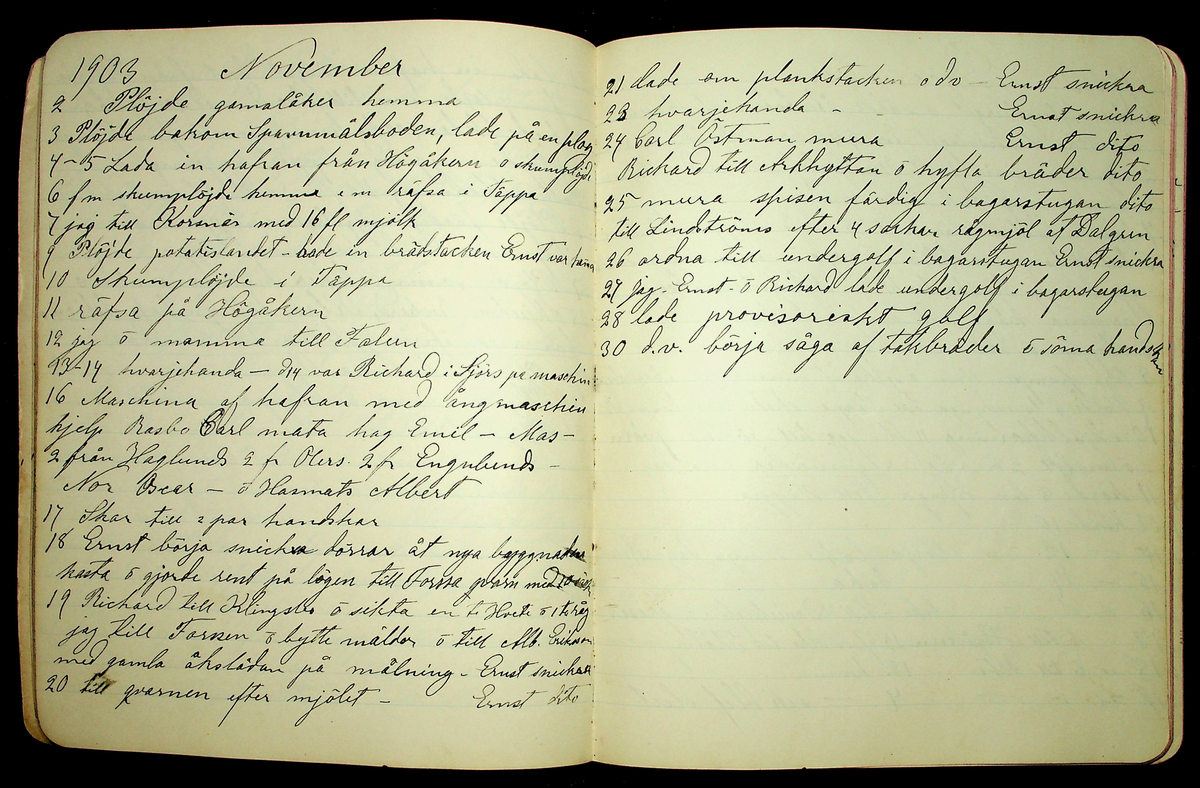 1903 November
2 Plöjde gamalåker hemma
3 Plöjde bakom Sparvmålsboden, lade på en plog
4-5 Lada in hafran från Högåkern o skumplöjde
6 fm skumplöjde hemma em räfsa i Täppa
7 jag till Korsnäs med 16 fl mjölk
9 Plöjde potatislandet - lade en brädstacken Ernst var hemma
10 Skumplöjde i Täppa
11 räfsa på Högåkern
12 jag o mamma till Falun
13-14 hvarjehanda - d 14 var Richard i Sjörs på maschin
16 Maschina af hafran med ångmaschien
hjelp Rasbo Carl mata hag Emil - Mas-
2 från Haglunds 2 fr Olers. 2 fr Englunds -
Nor Oscar - o Hasmats Albert
17 Skar till 2 par handskar
18 Ernst börja snickra dörrar åt nya byggnaden
kasta o gjorde rent på logen till Forssa qvarn med 10 säck
19 Richard till Klingsbo o sikta en t Hvete o 1 t råg
jag till Forsen o bytte mälder o till Alb. Erikson
med gamla åkslädan på målning - Ernst snickra
20 till qvarnen efter mjölet - Ernst dito
21 lade om plankstacken o dv - Ernst snickra
23 hvarjehanda - Ernst snickra
24 Carl Östman mura Ernst dito
Richard till Arkhyttan o hyfla bräder dito
25 mura spisen färdig i bagarstugan dito
till Lindströms efter 4 säckar rågmjöl af Dalgren
26 ordna till undergolf i bagarstugan Ernst snickra
27 jag - Ernst - o Richard lade undergolf i bagarstugan
28 lade provisoriskt golf
30 d.v. börja såga af takbräder o söma handskar